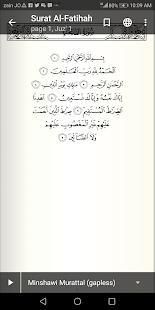 zain JO
10:09 AM
Surat Al-Fatihah
page 1, Juz' 1
بسم الله الرحمن الرحيم ١
الحمد لله رب العالمين ٢
الرحمن الرحيم ٣ مالك يوم الدين ٤
إياك نعبد وإياك نستعين ٥ اهدنا
الصراط المستقيم ٦ صراط الذين أنعمت
عليهم غير المغضوب عليهم
ولا الضالين ٧
Minshawi Murattal (gapless)